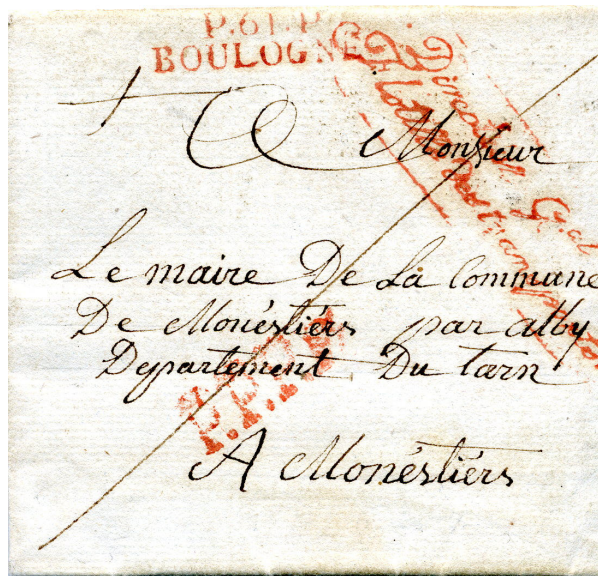 P.61.P.
BOULOGNE
A Monsieur
Le maire De La Commune
De Monéstiérs par alby
Departement Du tarn
P.P.P.
A Monéstiérs